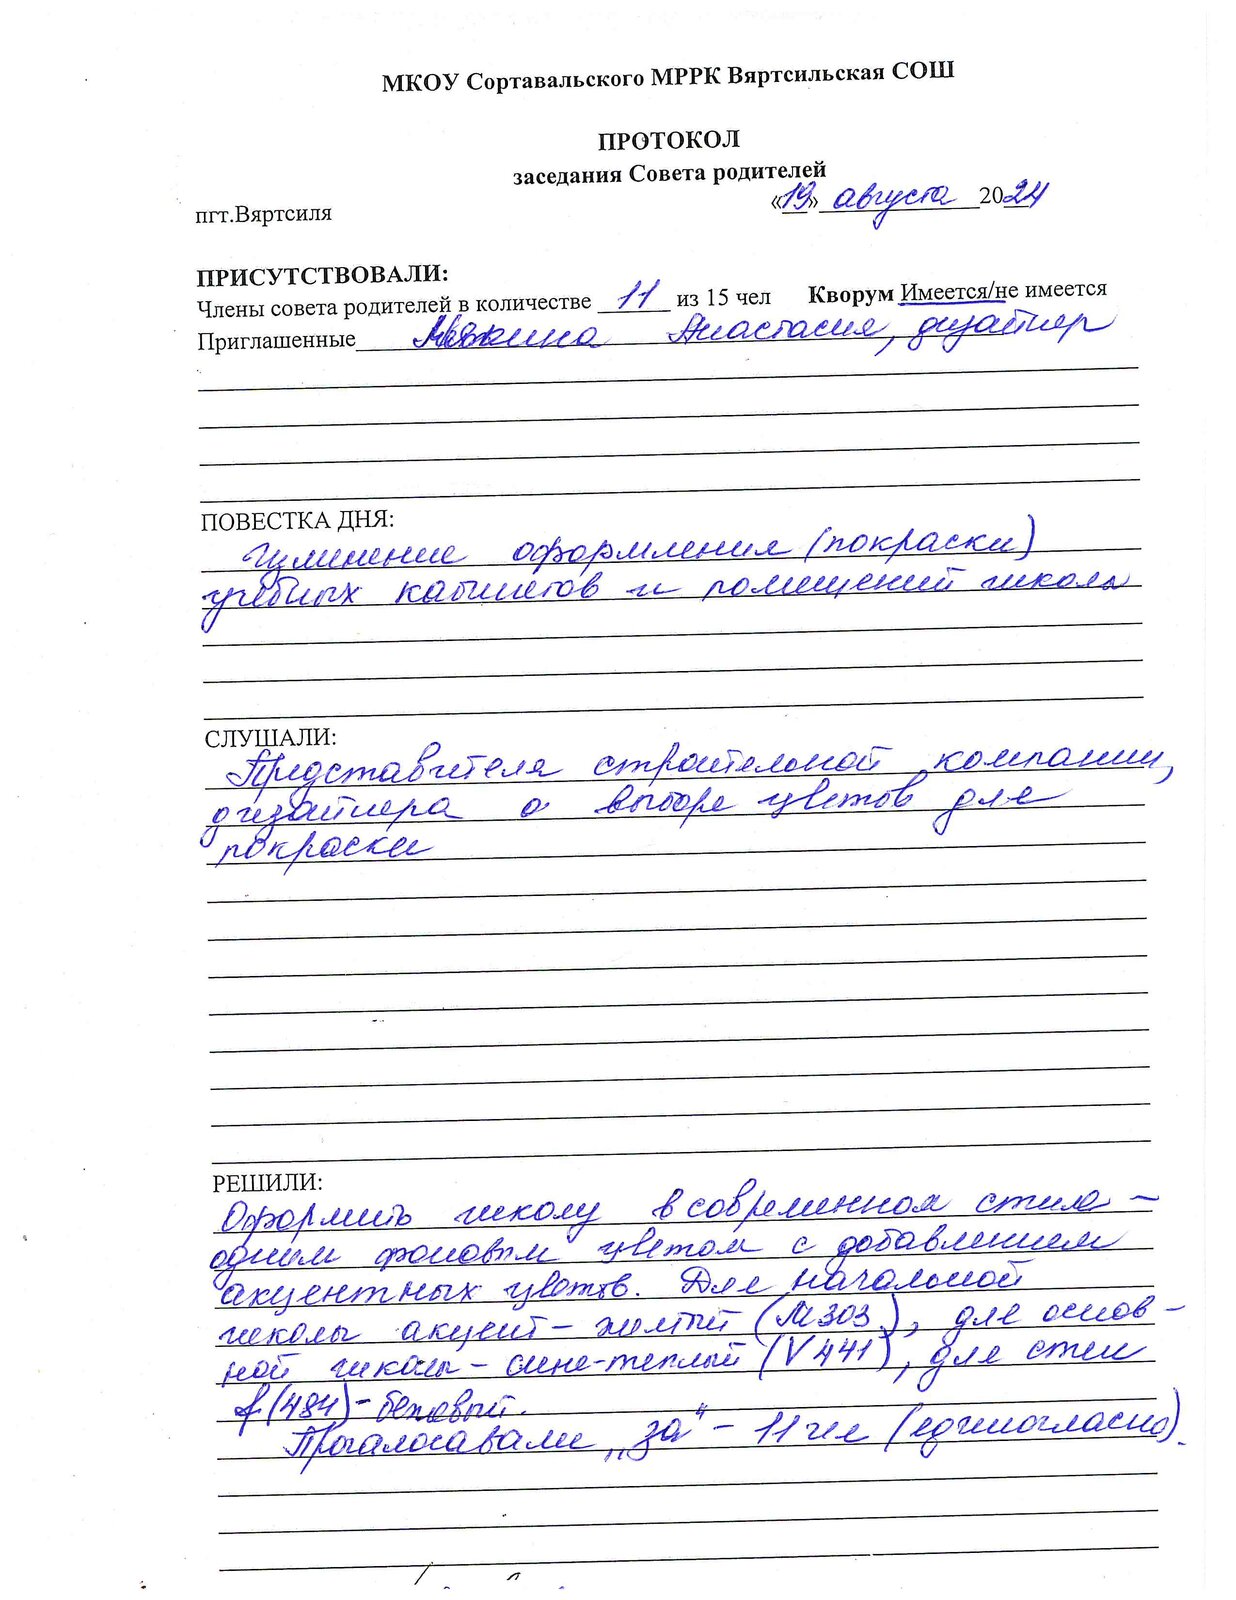 МКОУ Сортавальского МРРК Вяртсильская СОШ
ПРОТОКОЛ
заседания Совета родителей
пгт.Вяртсиля «19» августа 2024
ПРИСУТСТВОВАЛИ:
Члены совета родителей в количестве 11 из 15 чел Кворум Имеется/не имеется
Приглашенные Анастасия, дизайнер
ПОВЕСТКА ДНЯ:
Изменение оформления (покраски)
учебных кабинетов и помещений школы
СЛУШАЛИ:
Представителя строительной компании,
дизайнера о выборе цветов для
покраски
РЕШИЛИ:
Оформить школу в современном стиле –
одним фоновым цветом с добавлением
акцентных цветов. Для начальной
школы акцент – желтый (М303), для основ-
ной школы – сине-теплый (V441), для стен
f(484) – бежевый.
Проголосовали „за" – 11 чел (единогласно).